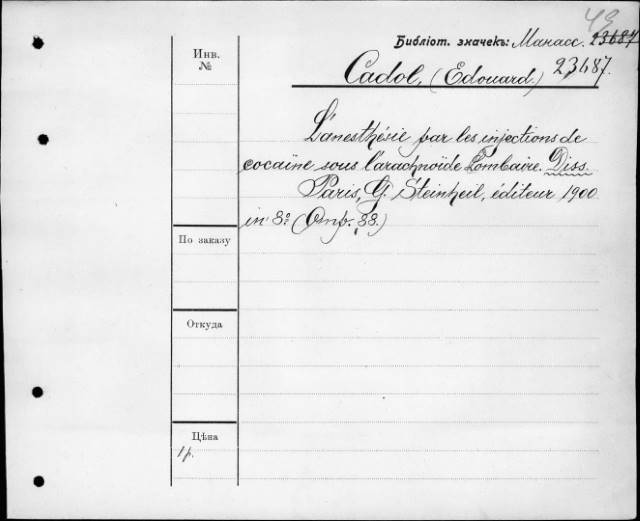 49
Библіот. значекъ: Манасс. 23687
Инв.
№
Cadol, (Edouard.) 23687.
L'anesthésie par les injections de
cocaïne sous l'arachnoïde Lombaire. Diss.
Paris, G. Steinheil, éditeur, 1900
in 8º (Стр. 88.)
По заказу
Откуда
Цѣна
1 р.